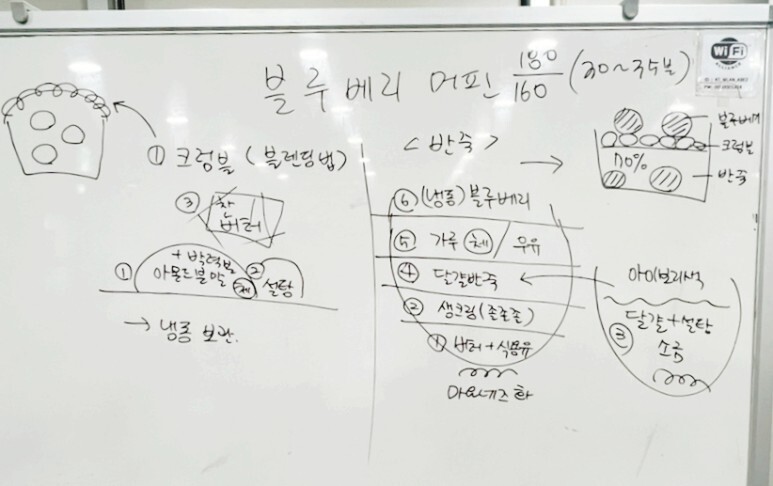 블루베리 머핀 180/160 (30~35분)
WiFi
① 크럼블 (블렌딩법)
③ 찬 버터
① + 박력분
아몬드분말 체
② 설탕
→ 냉동 보관.
< 반죽 >
⑥ (냉동) 블루베리
⑤ 가루 체 / 우유
④ 달걀반죽
② 생크림 (졸졸졸)
① 버터 + 식용유
마요네즈화
블루베리
크럼블
70%
반죽
아이보리색
③ 달걀+설탕
소금